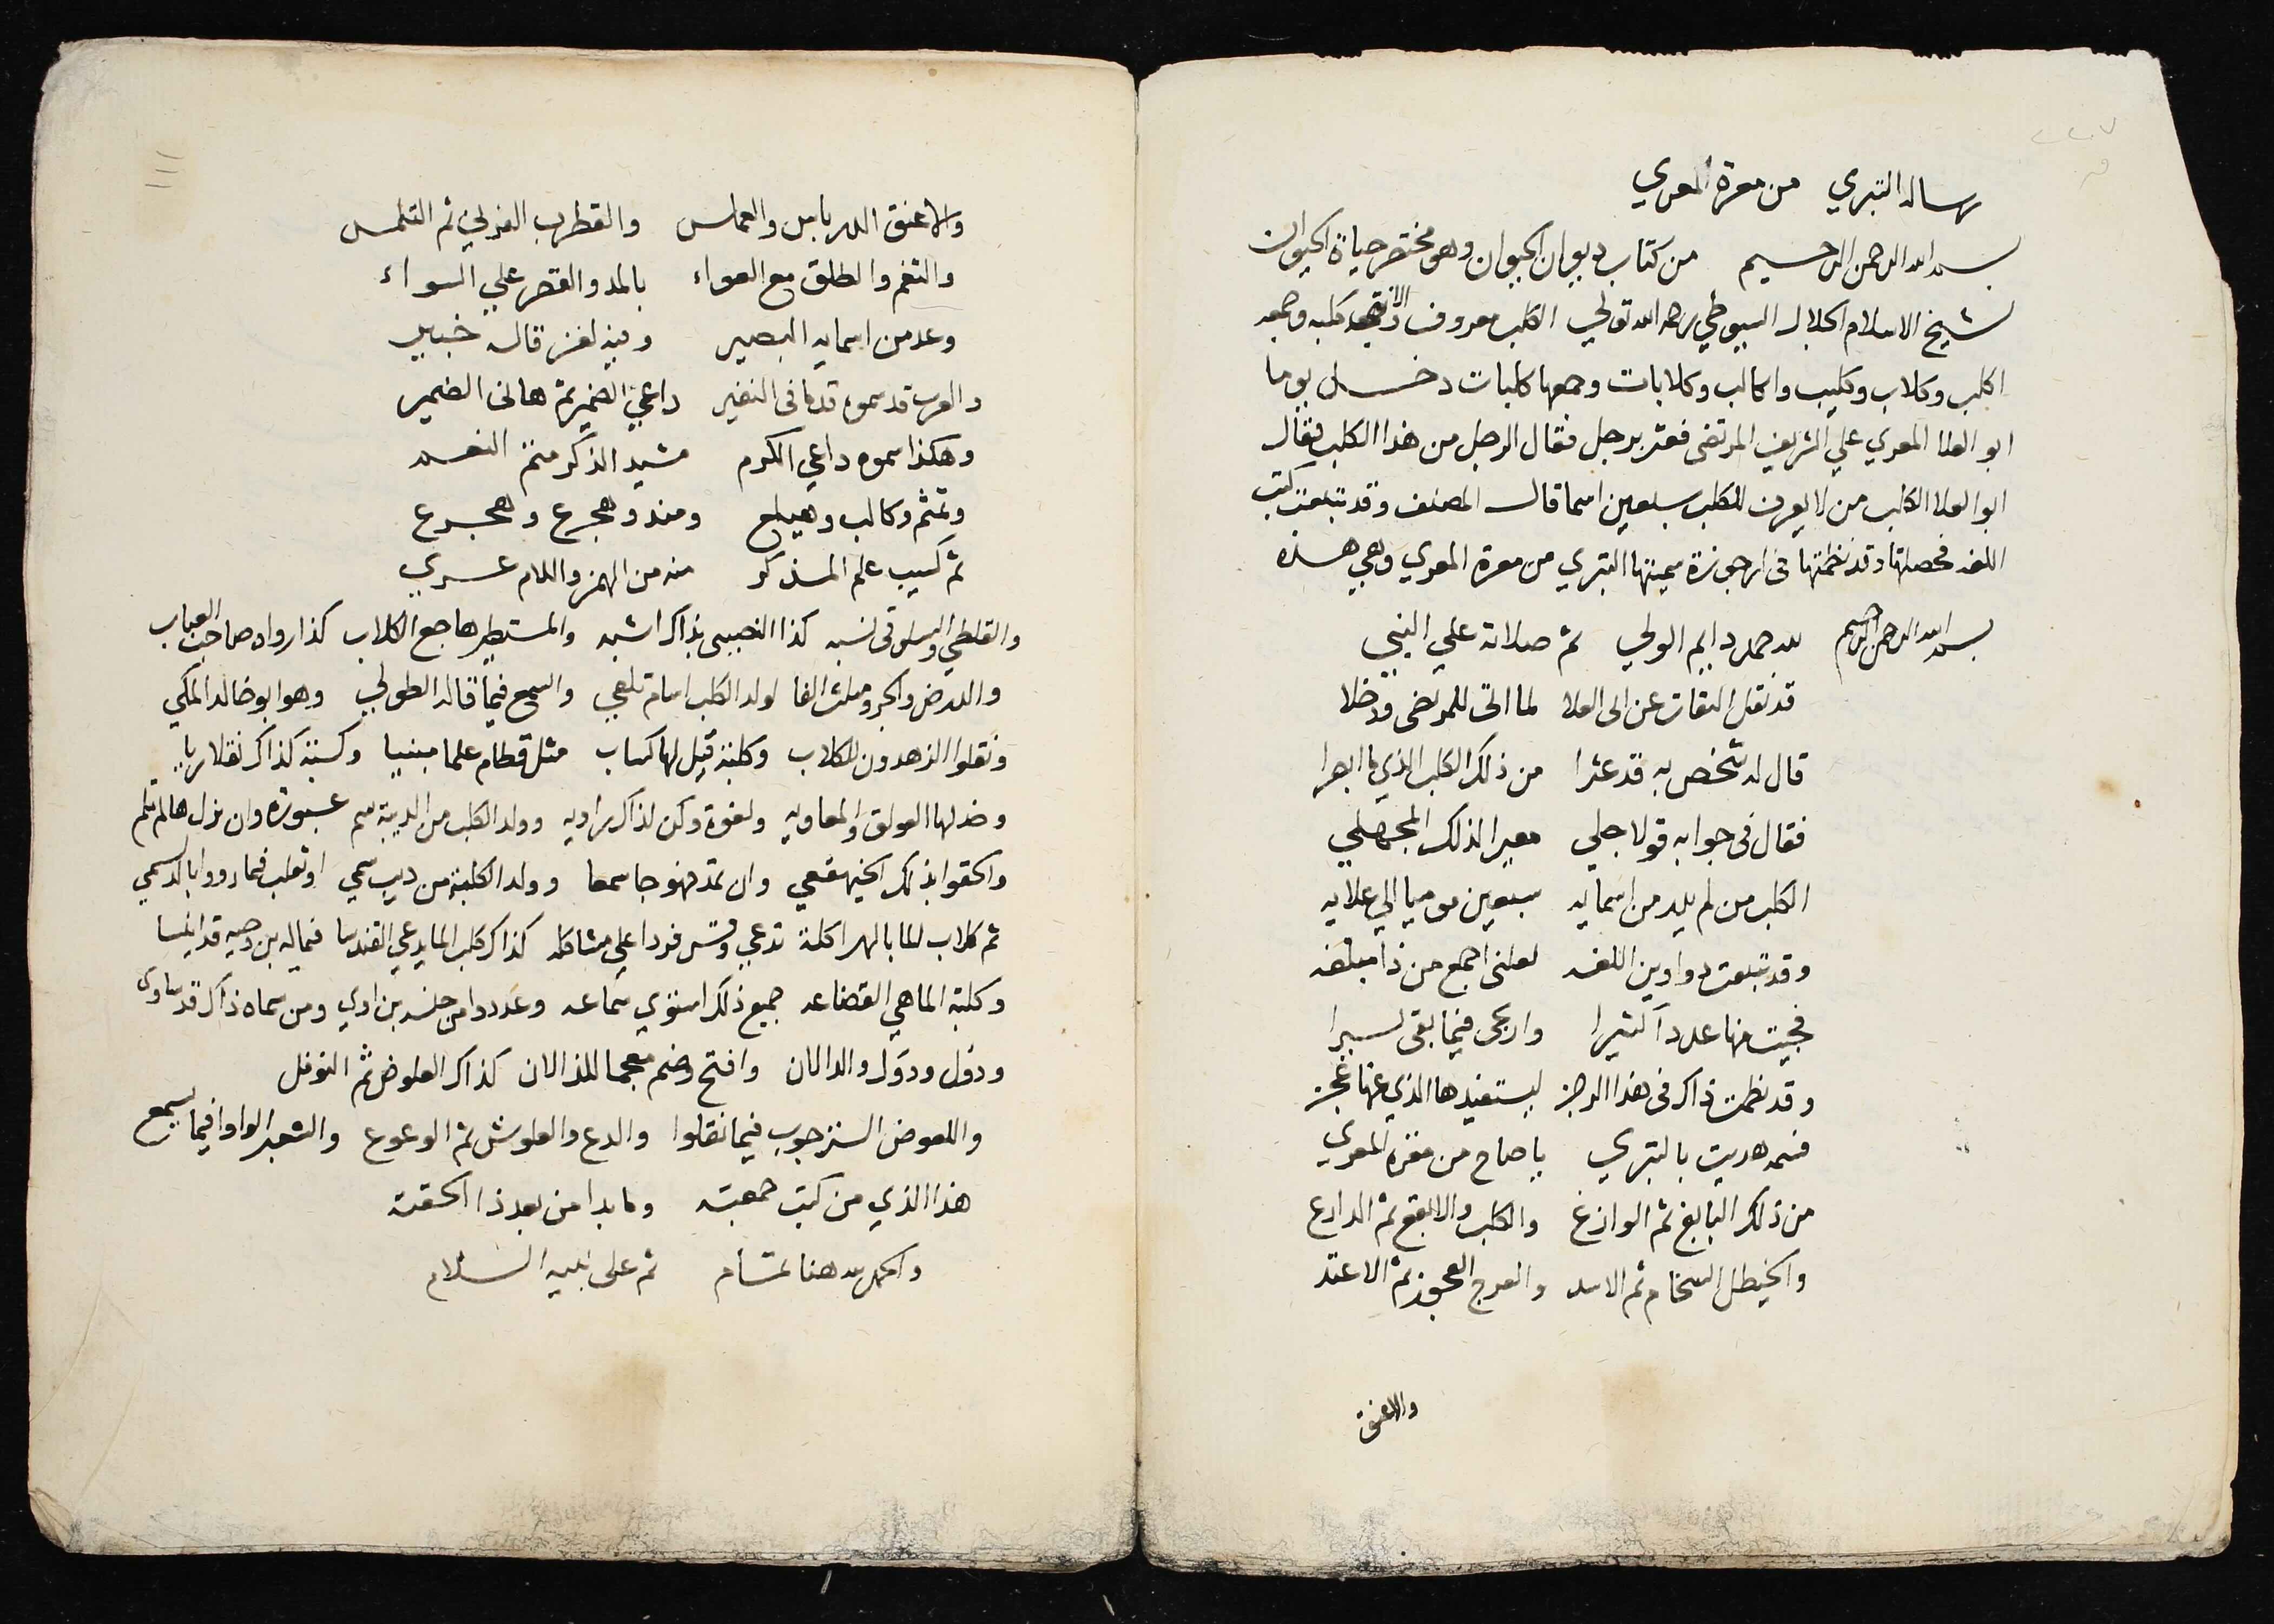 رساله التبري من معرة المعري
بسم الله الرحمن الرحيم من كتاب ديوان الحيوان وهو مختصر حياة الحيوان
لشيخ الاسلام الجلال السيوطي رحمه الله تولي الكلب معروف الانثي كلبه وجمعه
اكلب وكلاب وكليب واكالب وكلابات وجمعها كلبات دخل يوما
ابو العلا المعري علي الشريف المرتضى فعثر برجل فقال الرجل من هذا الكلب فقال
ابو العلا الكلب من لا يعرف للكلب سبعين اسما قال المصنف وقد تتبعت كتب
اللغه فحصلتها وقد نظمتها في ارجوزة سميتها التبري من معرة المعري وهي هذه
بسم الله الرحمن الرحيم لله حمد دايم الولي ثم صلاته علي النبي
قد نقل الثقات عن ابي العلا لما اتى للمرتضى ودخلا
قال له شخص به قد عثرا من ذلك الكلب الذي ما ابصرا
فقال في جوابه قولا جلي معيرا لذلك المجهلي
الكلب من لم يدر من اسمايه سبعين موميا الي علايه
وقد تتبعت دواوين اللغه لعلني اجمع من ذا مبلغه
فجيت منها عددا كثيرا وارجى فيما بقى يسيرا
وقد نظمت ذاك في هذا الرجز ليستفيدها الذي عنها عجز
فسمه هديت بالتبري يا صاح من معرة المعري
من ذلك الباقع ثم الوازع والكلب والابقع ثم الدارع
والخيطل السخام ثم الاسد والعرج العجوز ثم الاعقد
والاعنق
١١١
والاعنق الدرباس والعملس والقطرب الفرني ثم الفلحس
والثغم والطلق مع العواء بالمد والقصر علي السواء
وعد من اسمايه البصير وفيه لغز قاله خبير
والعرب قد سموه قدما في النفير داعي الضمير ثم هاني الضمير
وهكذا سموه داعي الكرم مشيد الذكر متمم النعم
وثمثم وكالب وهبلع ومنذر وهجرع وهجرع
ثم كسيب علم المذكر منه من الهمز واللام عري
والقلطي والسلوقي نسبه كذا الصيني بذاك اشبه والمستطير هايج الكلاب كذا رواه صاحب العباب
والدرص والجرو مثلث الفا لولد الكلب اسام تلفي والسمع فيما قاله الصولي وهو ابو خالد المكي
ونقلوا الزهدون للكلاب وكلبة قيل لها كساب مثل قطام علما مبنيا وكسبة كذاك نقلا رويا
وخذ لها العولق والمعاويه ولعوة وكن لذاك راويه وولد الكلب من الذيبة سم عسبورة وان تزل هالم تلم
والحقوا بذلك الخيهفعي وان تمد فهو جا سمعا وولد الكلبة من ذيب سمي او ثعلب فيما رووا بالديسمي
ثم كلاب الما بالهراكلة تدعي وقس فردا علي مشاكله كذاك كلب الما يدعي القندسا فيما له ابن دحيه قد ايتسا
وكلبة الما هي القضاعه جميع ذلك استوي سماعه وعددوا من جنسه ابن اوي ومن سماه ذاك قد ساوى
ودؤل ودؤل والدالان وافتح وضم معجما للذالان كذاك العلوض ثم النوفل
واللعوض السرحوب فيما نقلوا والدع والعلوش ثم الوعوع والشغبر الواوا فيما يسمع
هذا الذي من كتب جمعته وما بدا من بعد ذا الحقته
والحمد لله هنا تمام ثم على نبيه السلام